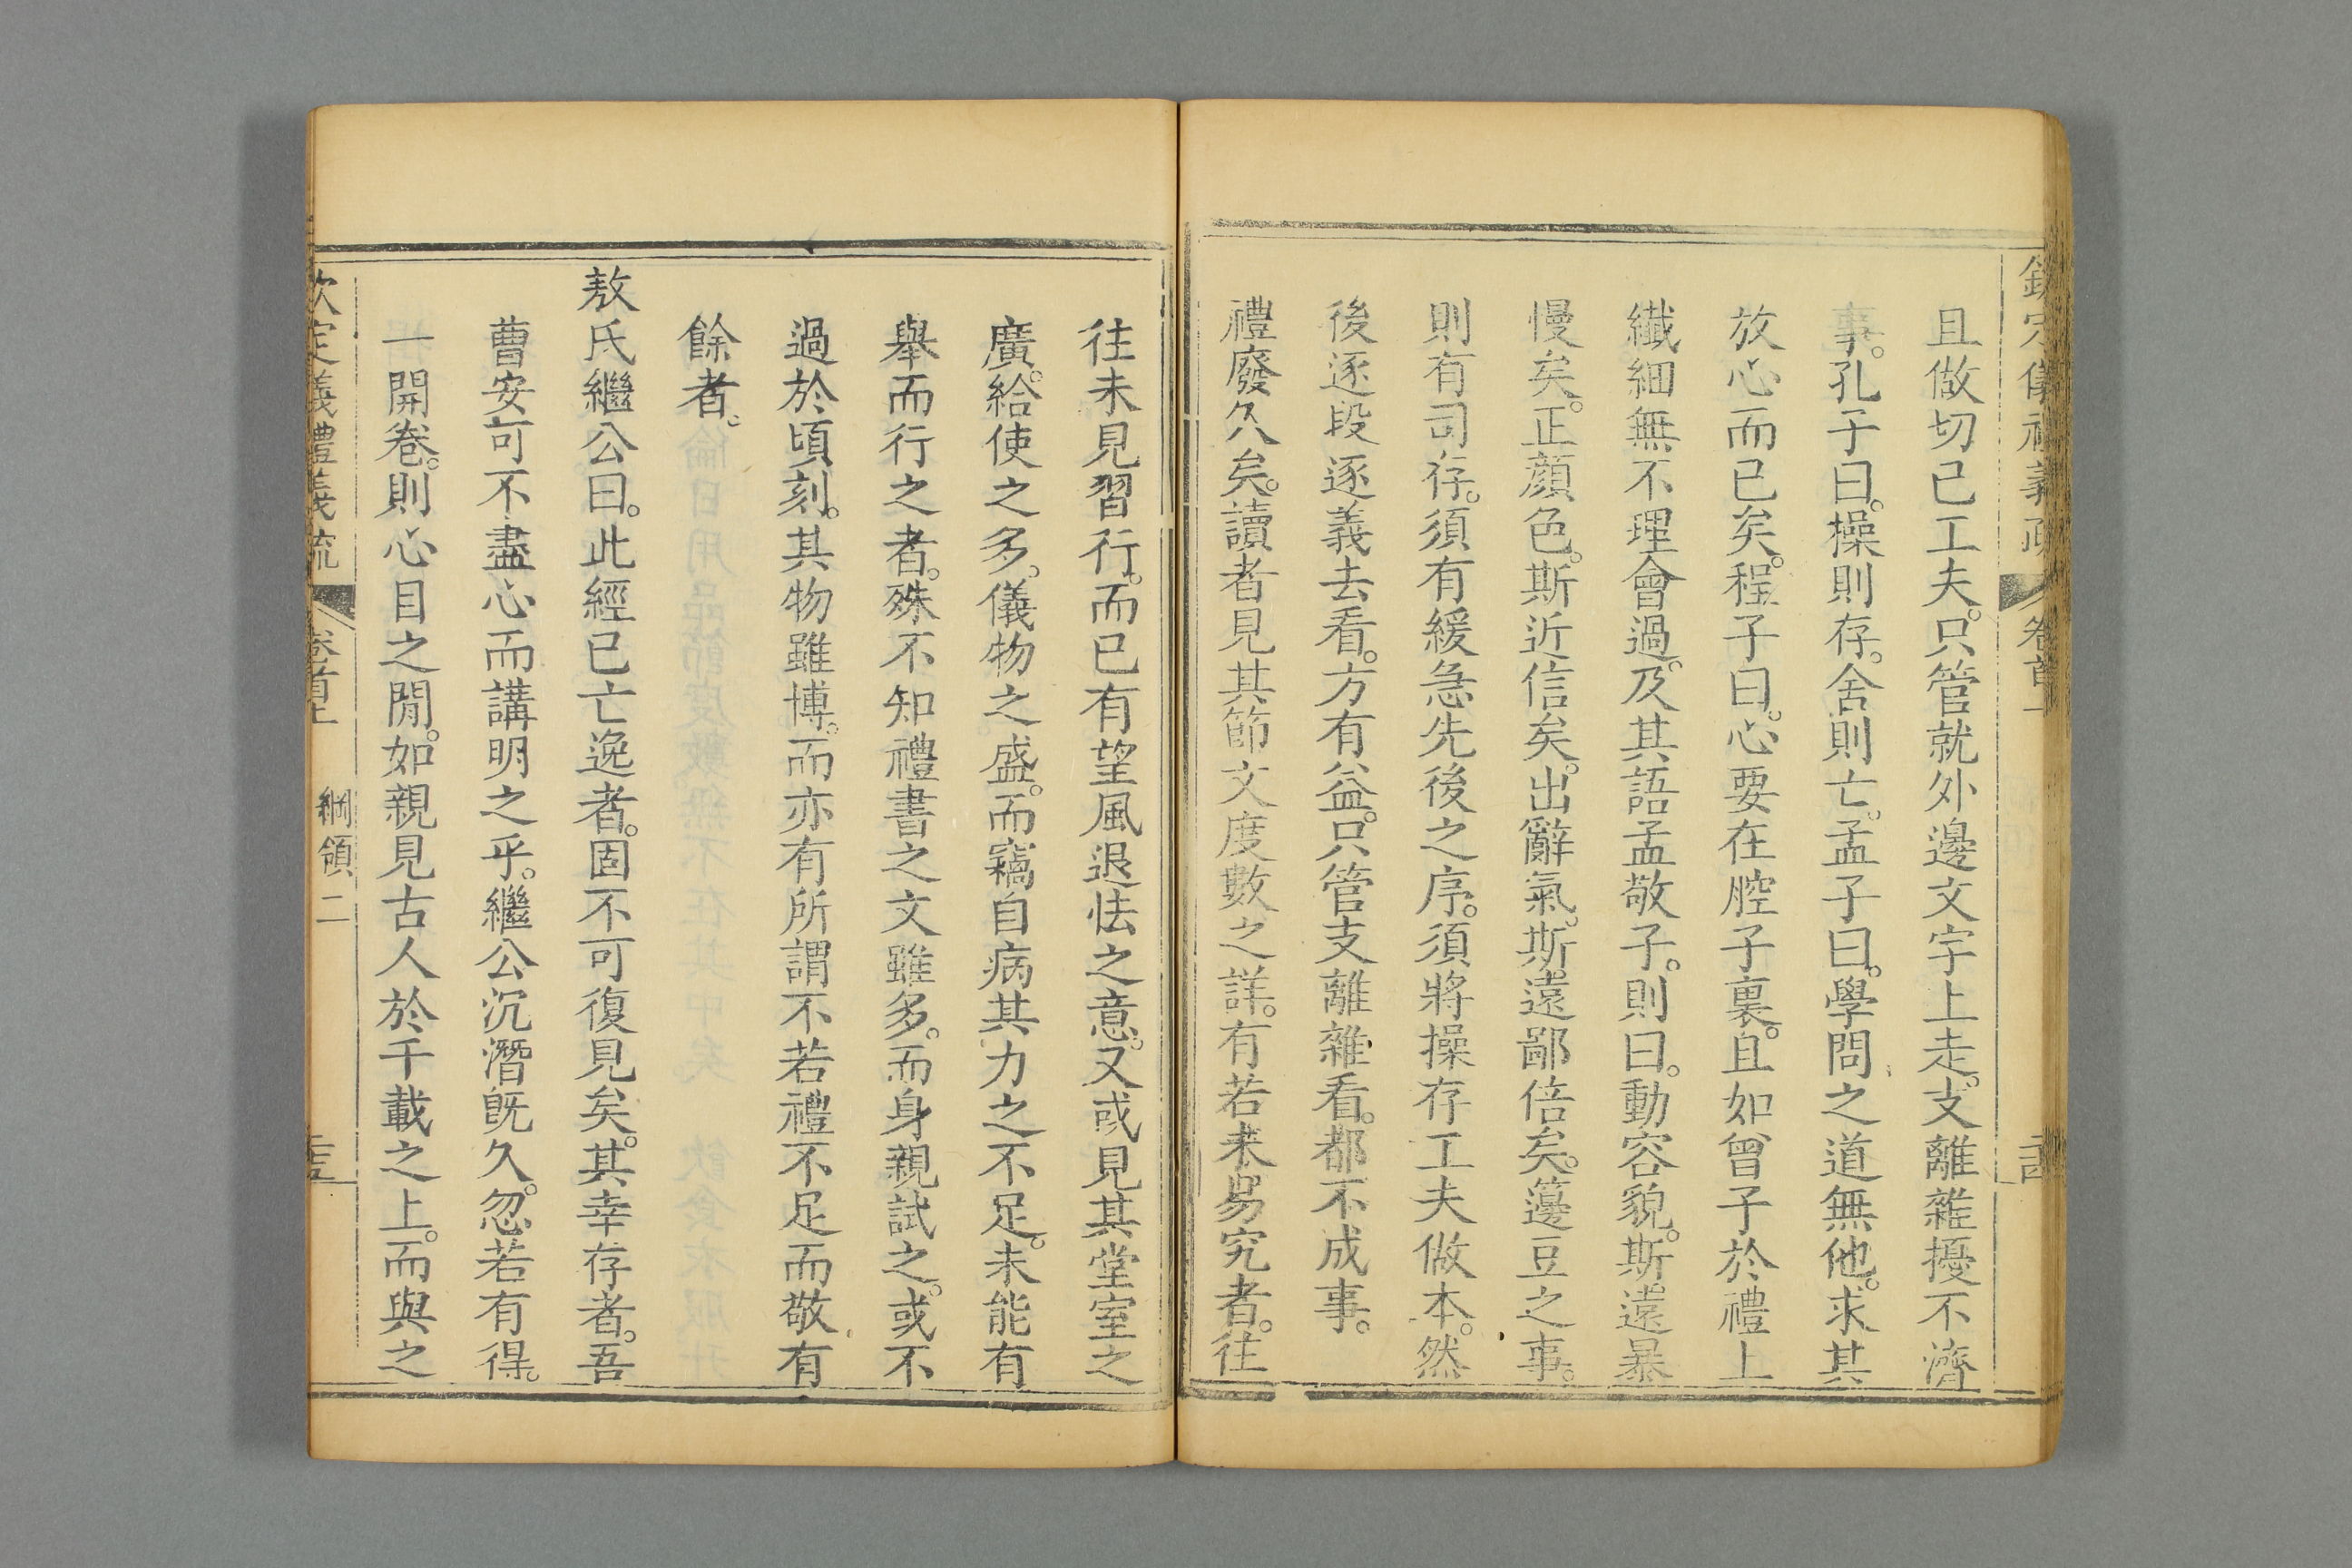 欽定儀禮義疏 卷首上
且做切己工夫。只管就外邊文字上走。支離雜擾不濟
事。孔子曰。操則存。舍則亡。孟子曰。學問之道無他。求其
放心而已矣。程子曰。心要在腔子裏。且如曾子於禮上
纖細無不理會過。及其語孟敬子。則曰。動容貌。斯遠暴
慢矣。正顏色。斯近信矣。出辭氣。斯遠鄙倍矣。籩豆之事。
則有司存。須有緩急先後之序。須將操存工夫做本。然
後逐段逐義去看。方有益。只管支離雜看。都不成事。
禮廢久矣。讀者見其節文度數之詳。有若未易究者。往
往未見習行。而已有望風退怯之意。又或見其堂室之
廣。給使之多。儀物之盛。而竊自病其力之不足。未能有
舉而行之者。殊不知禮書之文雖多。而身親試之。或不
過於頃刻。其物雖博。而亦有所謂不若禮不足而敬有
餘者。
敖氏繼公曰。此經已亡逸者。固不可復見矣。其幸存者。吾
曹安可不盡心而講明之乎。繼公沉潛旣久。忽若有得。
一開卷。則心目之閒。如親見古人於千載之上。而與之
欽定儀禮義疏 卷首上 綱領二